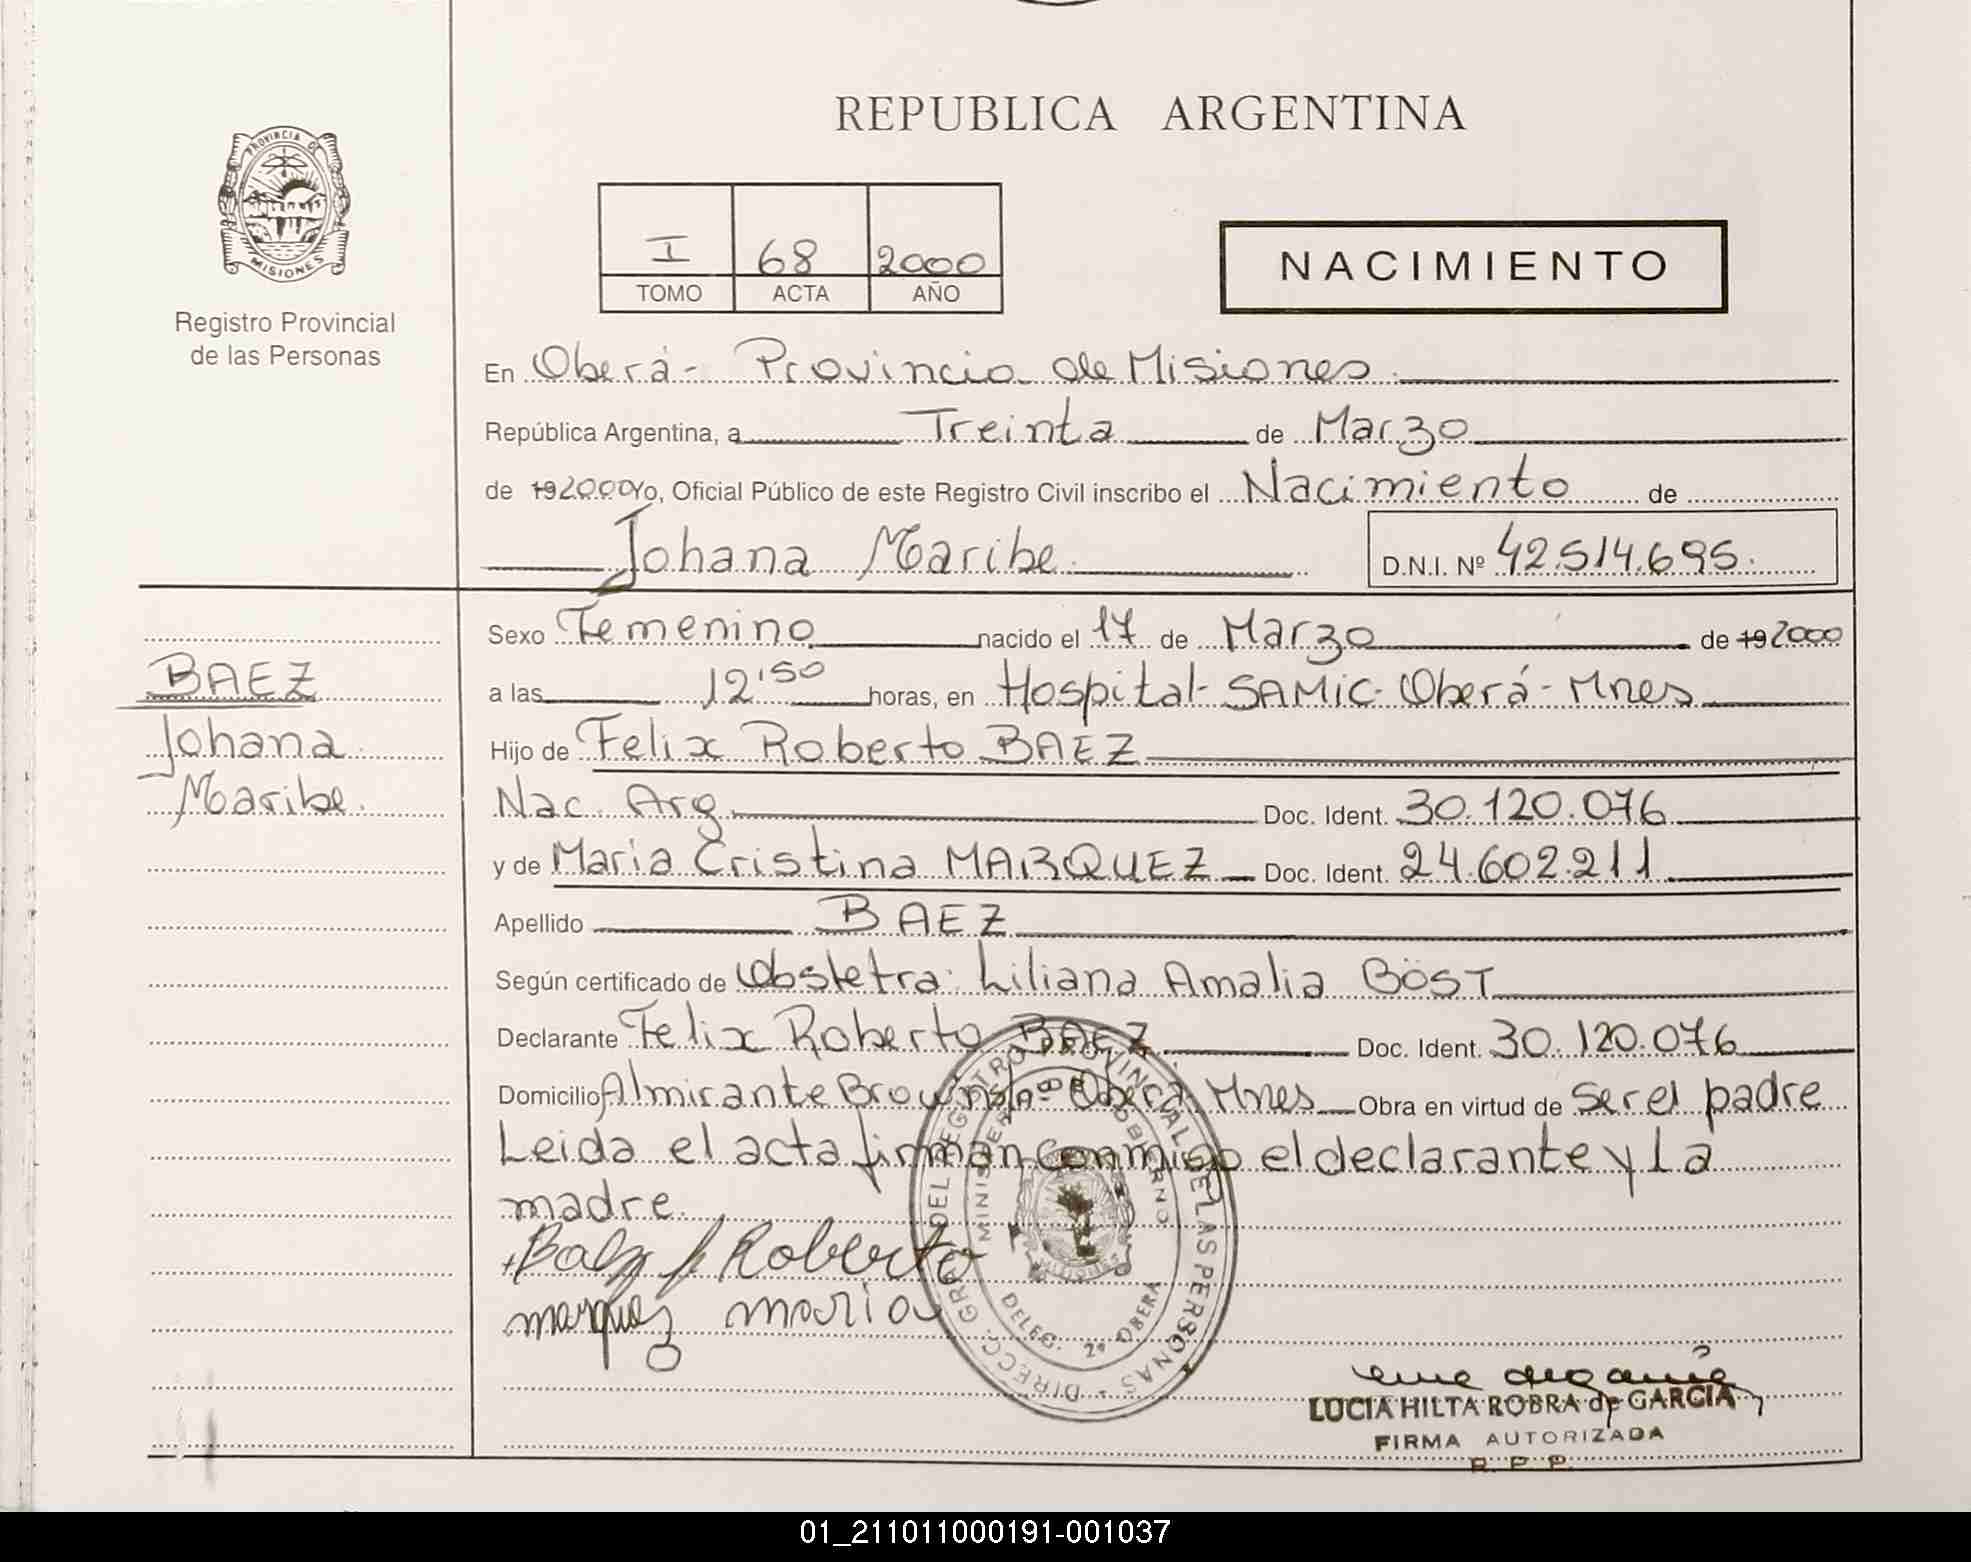 REPUBLICA ARGENTINA
PROVINCIA DE
MISIONES
Registro Provincial
de las Personas
I 68 2000
TOMO ACTA AÑO
NACIMIENTO
En Oberá - Provincia de Misiones.
República Argentina, a Treinta de Marzo
de 192000 Yo, Oficial Público de este Registro Civil inscribo el Nacimiento de
Johana Maribe. D.N.I. Nº 42.514.695.
Sexo Femenino nacido el 17 de Marzo de 192000
BAEZ
Johana
Maribe.
a las 12'50 horas, en Hospital - SAMIC - Oberá - Mnes
Hijo de Felix Roberto BAEZ
Nac. Arg. Doc. Ident. 30.120.076
y de Maria Cristina MARQUEZ Doc. Ident. 24.602.211
Apellido BAEZ
Según certificado de Obstetra: Liliana Amalia BÖST
Declarante Felix Roberto BAEZ Doc. Ident. 30.120.076
Domicilio Almirante Brown Oberá Mnes Obra en virtud de ser el padre
Leida el acta firman conmigo el declarante y La
madre.
Baez f. Roberto
marquez maria
DIRECC. GRAL. DEL REGISTRO PROVINCIAL DE LAS PERSONAS
MINISTERIO DE GOBIERNO
MISIONES
DELEG. 2ª OBERA
LUCIA HILTA ROBRA de GARCIA
FIRMA AUTORIZADA
R. P. P.
01_211011000191-001037